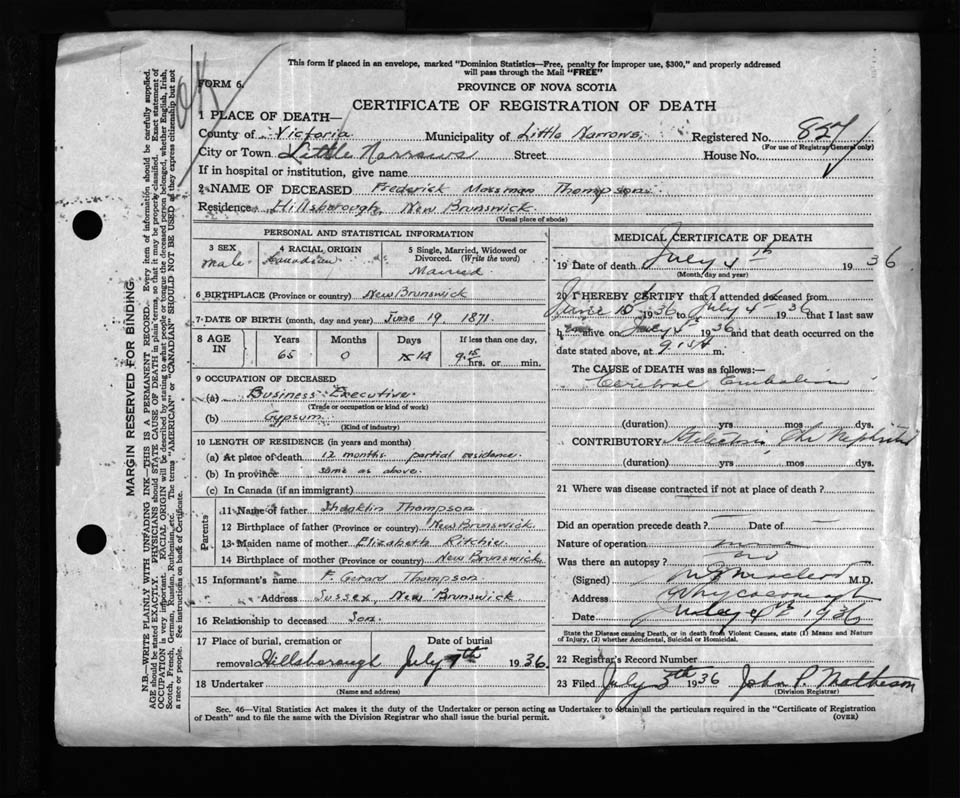 This form if placed in an envelope, marked "Dominion Statistics—Free, penalty for improper use, $300," and properly addressed
will pass through the Mail "FREE"
FORM 6.
PROVINCE OF NOVA SCOTIA
CERTIFICATE OF REGISTRATION OF DEATH
OK
1 PLACE OF DEATH—
County of Victoria Municipality of Little Narrows. Registered No. 827
(For use of Registrar General only)
City or Town Little Narrows Street House No.
If in hospital or institution, give name
2 NAME OF DECEASED Frederick Mossman Thompson.
Residence Hillsborough, New Brunswick.
(Usual place of abode)
PERSONAL AND STATISTICAL INFORMATION
3 SEX 4 RACIAL ORIGIN 5 Single, Married, Widowed or
Divorced. (Write the word)
male. Canadian Married
6 BIRTHPLACE (Province or country) New Brunswick
7 DATE OF BIRTH (month, day and year) June 19, 1871.
8 AGE IN Years Months Days If less than one day,
65 0 14 9.15 hrs. or min.
9 OCCUPATION OF DECEASED
(a) Business Executive.
(Trade or occupation or kind of work)
(b) Gypsum.
(Kind of industry)
10 LENGTH OF RESIDENCE (in years and months)
(a) At place of death 12 months partial residence.
(b) In province same as above.
(c) In Canada (if an immigrant)
Parents
11 Name of father Thompson
12 Birthplace of father (Province or country) New Brunswick.
13 Maiden name of mother Elizabeth Ritchie
14 Birthplace of mother (Province or country) New Brunswick
15 Informant's name F. Gerard Thompson.
Address Sussex, New Brunswick
16 Relationship to deceased Son.
17 Place of burial, cremation or Date of burial
removal Hillsborough July 7th 1936.
18 Undertaker
(Name and address)
MEDICAL CERTIFICATE OF DEATH
19 Date of death July 4th 1936
(Month, day and year)
20 I HEREBY CERTIFY that I attended deceased from
June 15 1936 to July 4th 1936 that I last saw
h alive on July 4th 1936 and that death occurred on the
date stated above, at 9.15 A m.
The CAUSE of DEATH was as follows:—
Cerebral Embolism
(duration) yrs. mos. dys.
CONTRIBUTORY Chr Nephritis
(duration) yrs. mos. dys.
21 Where was disease contracted if not at place of death?
Did an operation precede death? — Date of —
Nature of operation
Was there an autopsy? no
(Signed) MacLeod M.D.
Address Whycocomagh
Date July 4th 1936
State the Disease causing Death, or in death from Violent Causes, state (1) Means and Nature
of Injury, (2) whether Accidental, Suicidal or Homicidal.
22 Registrar's Record Number
23 Filed July 5th 1936 John P. Matheson
(Division Registrar)
Sec. 46—Vital Statistics Act makes it the duty of the Undertaker or person acting as Undertaker to obtain all the particulars required in the "Certificate of Registration
of Death" and to file the same with the Division Registrar who shall issue the burial permit. (OVER)
MARGIN RESERVED FOR BINDING.
N.B.—WRITE PLAINLY WITH UNFADING INK—THIS IS A PERMANENT RECORD. Every item of information should be carefully supplied.
AGE should be stated EXACTLY. PHYSICIANS should STATE CAUSE OF DEATH in plain terms, so that it may be properly classified. Exact statement of
OCCUPATION is very important. RACIAL ORIGIN will be described by stating to what people or tongue the deceased person belonged, whether English, Irish,
Scotch, French, German, Russian, Ruthenian, etc. The terms "AMERICAN" or "CANADIAN" SHOULD NOT BE USED as they express citizenship but not
a race or people. See instructions on back of Certificate.